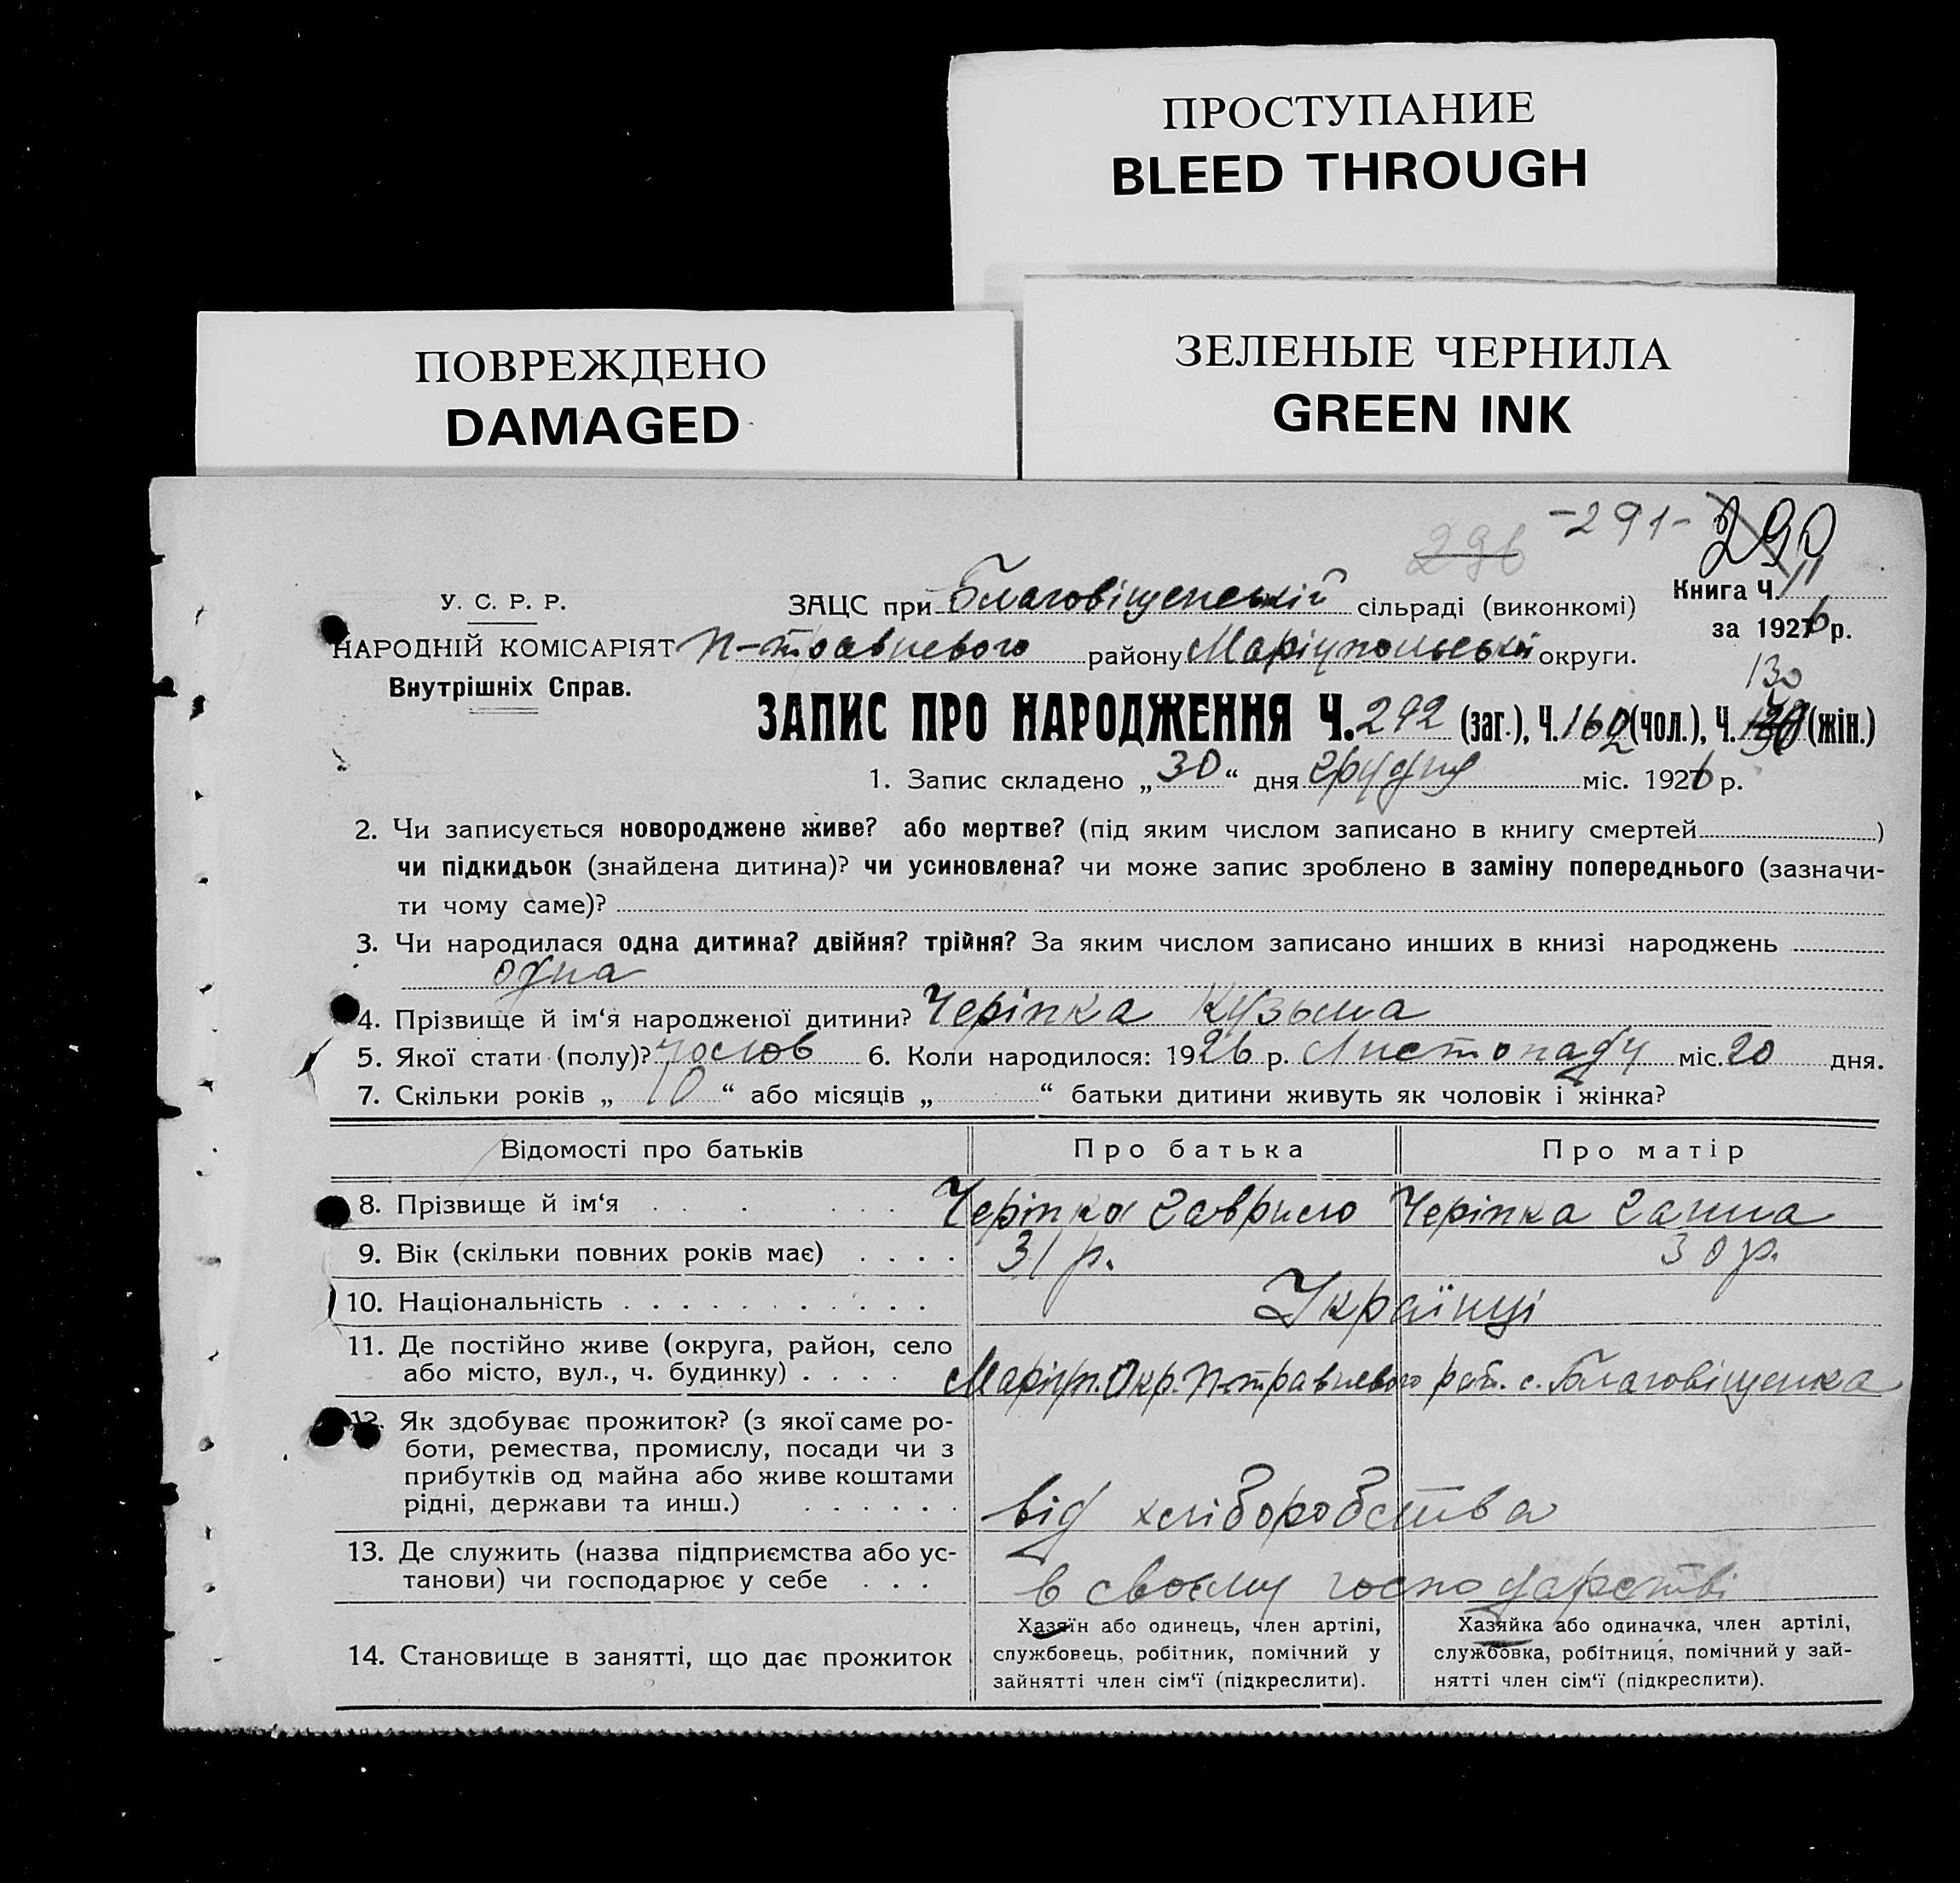 ПРОСТУПАНИЕ
BLEED THROUGH
ПОВРЕЖДЕНО
DAMAGED
ЗЕЛЕНЫЕ ЧЕРНИЛА
GREEN INK
296 -291- 290
У. С. Р. Р.
НАРОДНІЙ КОМІСАРІЯТ
Внутрішніх Справ.
ЗАЦС при Благовіщенській сільраді (виконкомі)
П-травневого району Маріупольської округи.
Книга Ч. 11
за 1926 р.
130
ЗАПИС ПРО НАРОДЖЕННЯ Ч. 292 (заг.), Ч. 162 (чол.), Ч. (жін.)
1. Запис складено „30“ дня грудня міс. 1926 р.
2. Чи записується новороджене живе? або мертве? (під яким числом записано в книгу смертей )
чи підкидьок (знайдена дитина)? чи усиновлена? чи може запис зроблено в заміну попереднього (зазначи-
ти чому саме)?
3. Чи народилася одна дитина? двійня? трійня? За яким числом записано инших в книзі народжень
одна
4. Прізвище й ім‘я народженої дитини? Черіпка Кузьма
5. Якої стати (полу)? чолов 6. Коли народилося: 1926 р. Листопаду міс. 20 дня.
7. Скільки років „10“ або місяців „ “ батьки дитини живуть як чоловік і жінка?
Відомості про батьків Про батька Про матір
8. Прізвище й ім‘я Черіпка Гаврило Черіпка Ганна
9. Вік (скільки повних років має) 31 р. 30 р.
10. Національність Українці
11. Де постійно живе (округа, район, село
або місто, вул., ч. будинку) Маріуп. Окр. П-травневого рай. с. Благовіщенка
12. Як здобуває прожиток? (з якої саме ро-
боти, ремества, промислу, посади чи з
прибутків од майна або живе коштами
рідні, держави та инш.) від хліборобства
13. Де служить (назва підприємства або ус-
танови) чи господарює у себе в своєму господарстві
14. Становище в занятті, що дає прожиток
Хазяїн або одинець, член артілі,
службовець, робітник, помічний у
зайнятті член сім‘ї (підкреслити).
Хазяйка або одиначка, член артілі,
службовка, робітниця, помічний у зай-
нятті член сім‘ї (підкреслити).